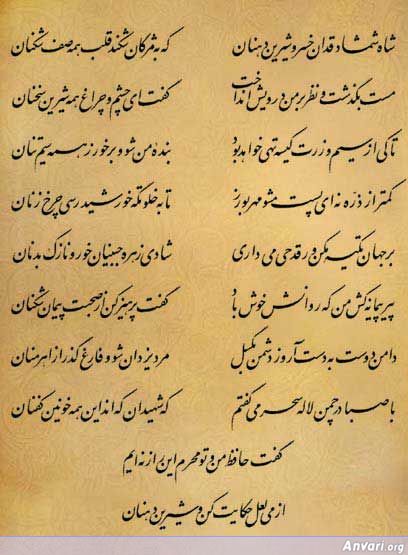 شاه شمشاد قدان خسرو شیرین دهنان که به مژگان شکند قلب همه صف شکنان
مست بگذشت و نظر بر من درویش انداخت گفت ای چشم و چراغ همه شیرین سخنان
تا کی از سیم و زرت کیسه تهی خواهد بود بنده من شو و برخور ز همه سیم تنان
کمتر از ذره نه ای پست مشو مهر بورز تا به خلوتگه خورشید رسی چرخ زنان
بر جهان تکیه مکن ور قدحی می داری شادی زهره جبینان خور و نازک بدنان
پیر پیمانه کش من که روانش خوش باد گفت پرهیز کن از صحبت پیمان شکنان
دامن دوست به دست آر و ز دشمن بگسل مرد یزدان شو و فارغ گذر از اهرمنان
با صبا در چمن لاله سحر می گفتم که شهیدان که اند این همه خونین کفنان
گفت حافظ من و تو محرم این راز نه ایم
از می لعل حکایت کن و شیرین دهنان
Anvari.org